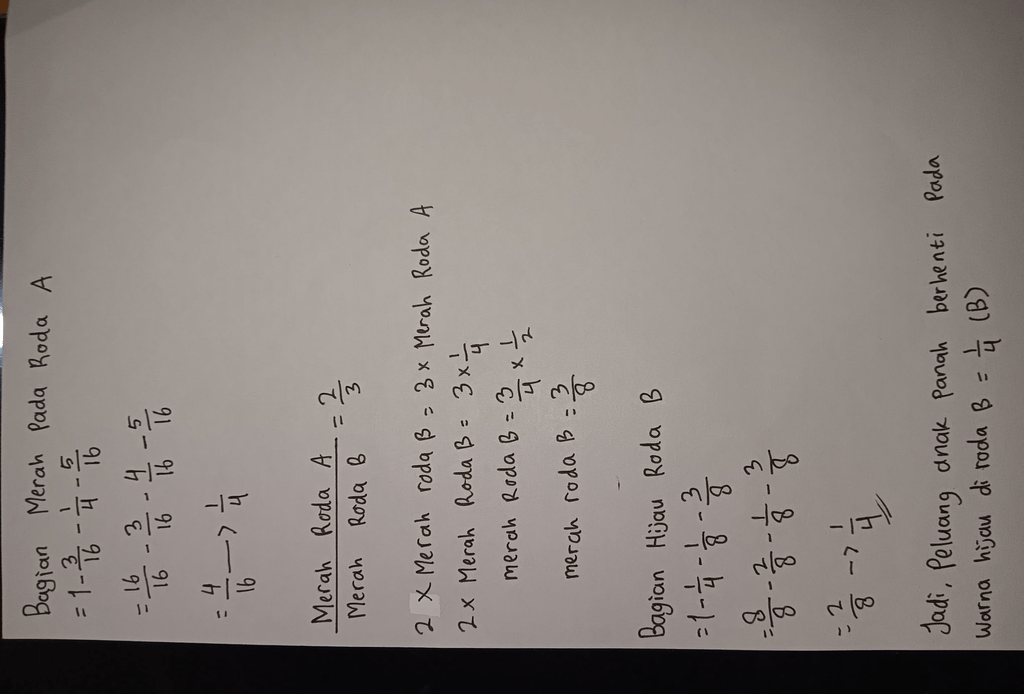 Bagian Merah Pada Roda A
= 1 - 3/16 - 1/4 - 5/16
= 16/16 - 3/16 - 4/16 - 5/16
= 4/16 → 1/4
Merah Roda A / Merah Roda B = 2/3
2 x Merah roda B = 3 x Merah Roda A
2 x Merah Roda B = 3 x 1/4
merah Roda B = 3/4 x 1/2
merah roda B = 3/8
Bagian Hijau Roda B
= 1 - 1/4 - 1/8 - 3/8
= 8/8 - 2/8 - 1/8 - 3/8
= 2/8 → 1/4
Jadi, Peluang anak Panah berhenti Pada
Warna hijau di roda B = 1/4 (B)